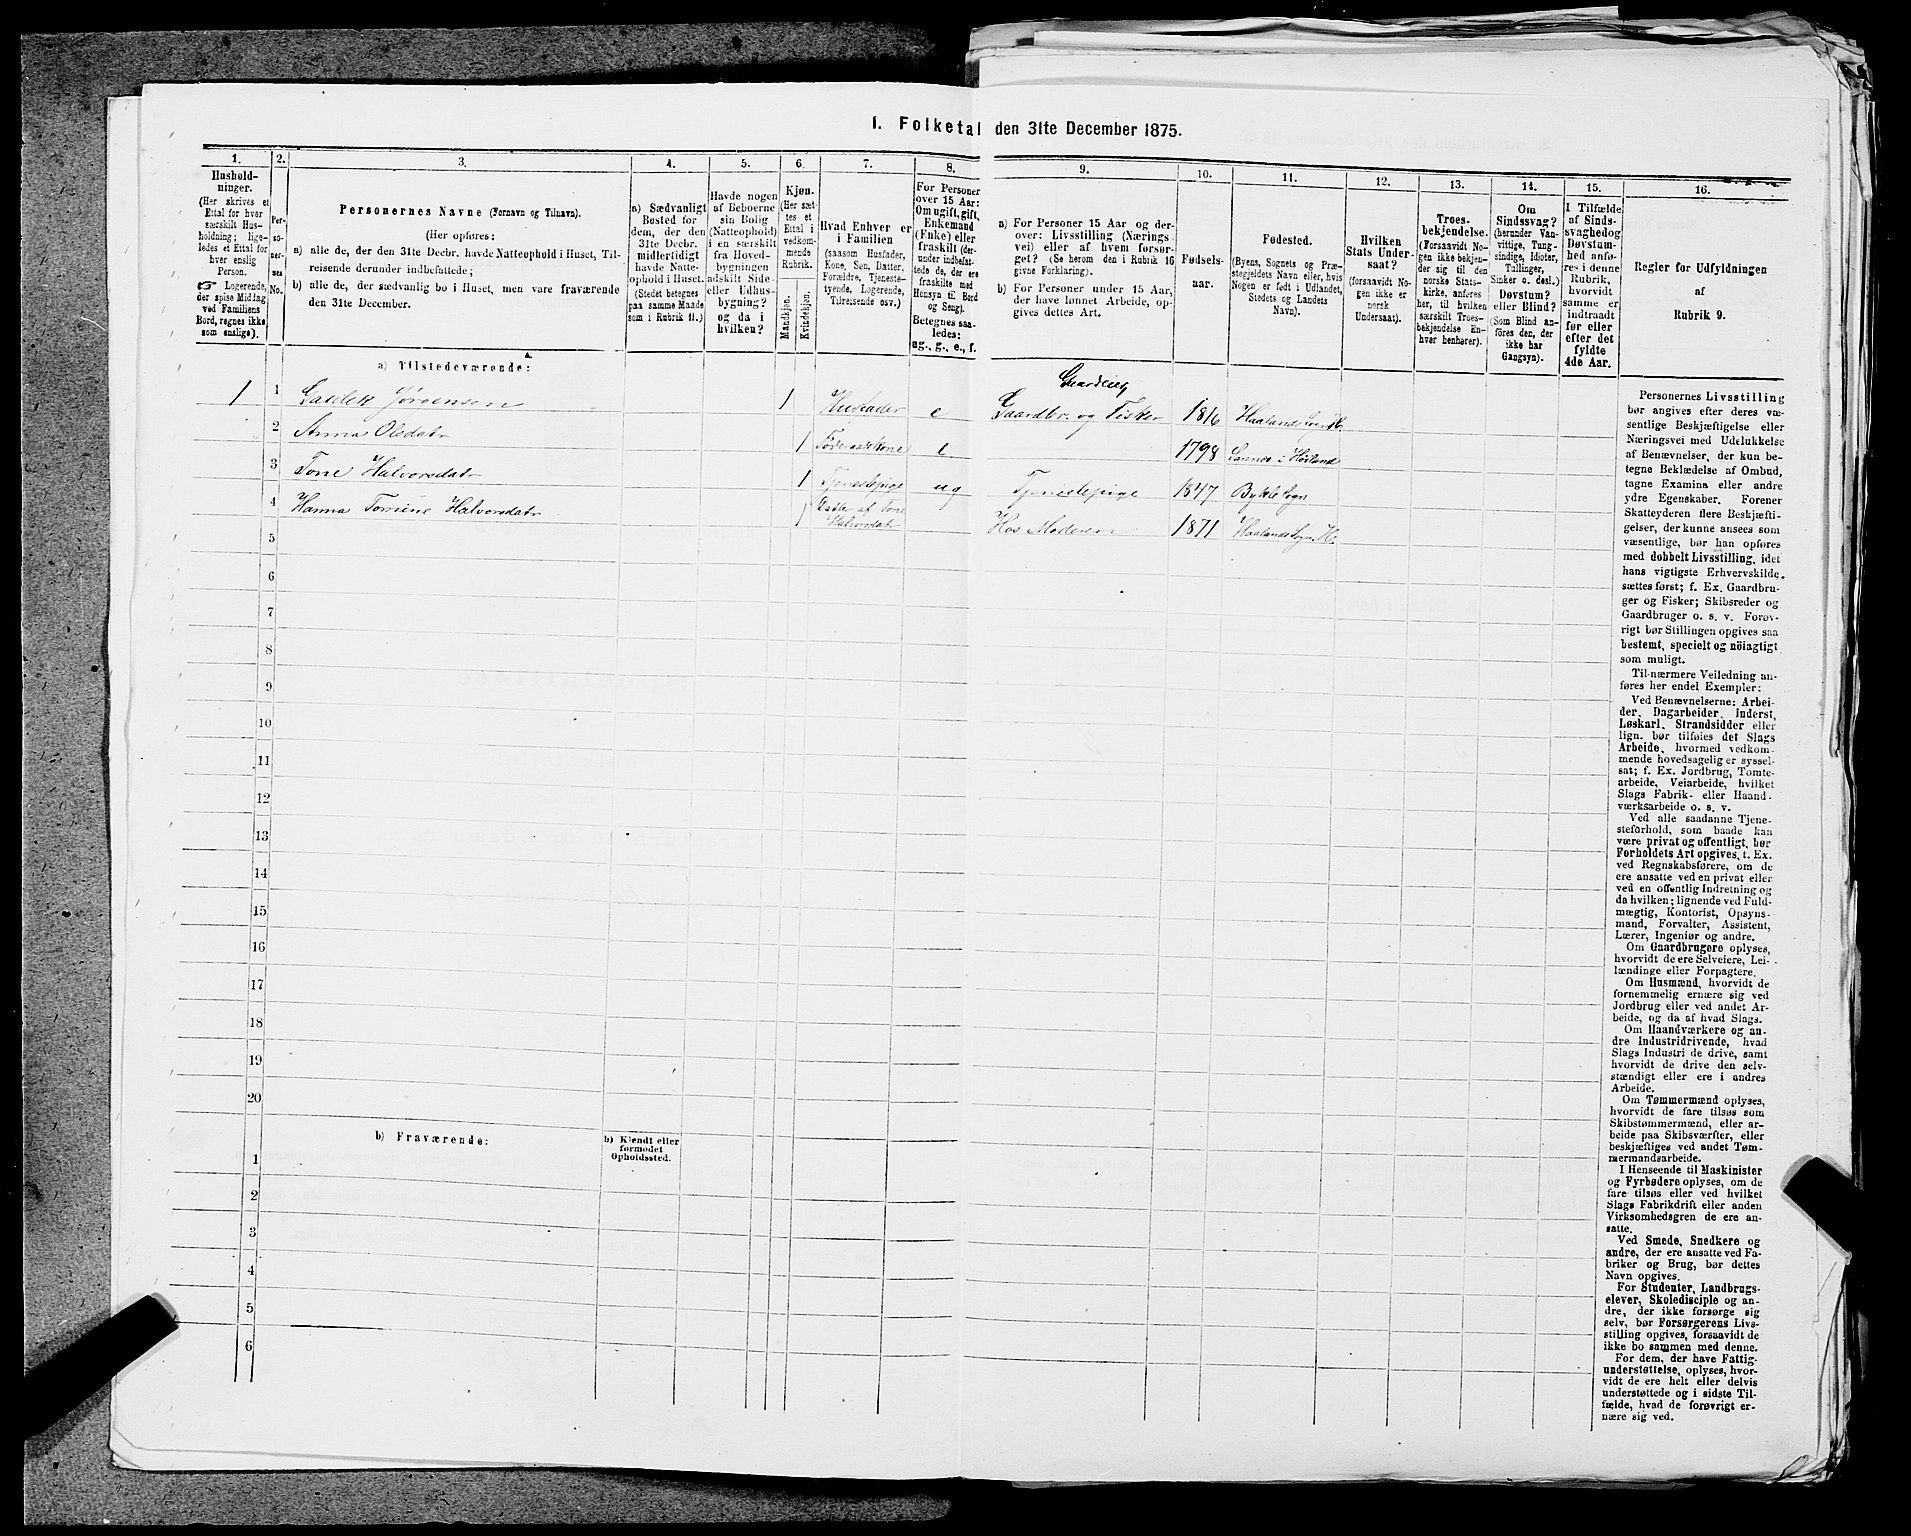 1. Folketal den 31te December 1875.
1. 2. 3. 4. 5. 6. 7. 8. 9. 10. 11. 12. 13. 14. 15. 16.
Hushold-
ninger.
(Her skrives et
Ettal for hver
særskilt Hus-
holdning; lige-
ledes et Ettal for
hver enslig
Person.
☞ Logerende,
der spise Middag
ved Familiens
Bord, regnes ikke
som enslige).
Per-
so-
ner-
nes
No.
Personernes Navne (Fornavn og Tilnavn).
(Her opføres:
a) alle de, der den 31te Decbr. havde Natteophold i Huset, Til-
reisende derunder indbefattede;
b) alle de, der sædvanlig bo i Huset, men vare fraværende
den 31te December.
a) Sædvanligt
Bosted for
dem, der den
31te Decbr.
midlertidigt
havde Natte-
ophold i Huset.
(Stedet betegnes
paa samme Maade
som i Rubrik 11.)
Havde nogen
af Beboerne
sin Bolig
(Natteophold)
i en særskilt
fra Hoved-
bygningen
adskilt Side-
eller Udhus-
bygning?
og da i
hvilken?
Kjøn.
(Her sæt-
tes et
Ettal i
vedkom-
mende
Rubrik.
Mandkjøn.
Kvindekjøn.
Hvad Enhver er
i Familien
(saasom Husfader,
Kone, Søn, Datter,
Forældre, Tjeneste-
tyende, Logerende,
Tilreisende osv.)
For Personer
over 15 Aar:
Om ugift, gift,
Enkemand
(Enke) eller
fraskilt (der-
under indbefat-
tede de, der ere
fraskilte med
Hensyn til Bord
og Seng).
Betegnes saa-
ledes:
ug., g., e., f.
a) For Personer 15 Aar og der-
over: Livsstilling (Nærings-
vei) eller af hvem forsør-
get? (Se herom den i Rubrik 16
givne Forklaring).
b) For Personer under 15 Aar,
der have lønnet Arbeide, op-
gives dettes Art.
Fødsels-
aar.
Fødested.
(Byens, Sognets og Præ-
stegjeldets Navn eller, hvis
Nogen er født i Udlandet,
Stedets og Landets
Navn).
Hvilken
Stats Under-
saat?
(forsaavidt No-
gen ikke er
norsk
Undersaat).
Troes-
bekjendelse.
(Forsaavidt No-
gen ikke bekjen-
der sig til den
norske Stats-
kirke, anføres
her, til hvilken
særskilt Troes-
bekjendelse En-
hver henhører).
Om
Sindssvag?
(herunder Van-
vittige, Tung-
sindige, Idioter,
Tullinger,
Sinker o. desl.)
Døvstum?
eller Blind?
(Som Blind an-
føres den, der
ikke har
Gangsyn).
I Tilfælde
af Sinds-
svaghed og
Døvstum-
hed anfø-
res i denne
Rubrik,
hvorvidt
samme er
indtraadt
før eller
efter det
fyldte
4de Aar.
Regler for Udfyldningen
af
Rubrik 9.
a) Tilstedeværende:
Gaardeier
1 1 Galdek Jørgensen 1 Husfader e Gaardbr. og Fisker 1816 Haalands Sogn H.
2 Anna Olsdatr 1 Føderaadskone e 1798 Sannes i Høiland
3 Tone Halvorsdatr 1 Tjenestepige ug Tjenestepige 1847 Bykle Sogn
4 Hanna Tomine Halvorsdatr 1 Datter af Tone Halvorsdatr Hos Moderen 1871 Haalands Sogn. H.
5
6
7
8
9
10
11
12
13
14
15
16
17
18
19
20
b) Fraværende:
b) Kjendt eller
formodet
Opholdssted.
1
2
3
4
5
6
Personernes Livsstilling
bør angives efter deres væ-
sentlige Beskjæftigelse eller
Næringsvei med Udelukkelse
af Benævnelser, der kun be-
tegne Beklædelse af Ombud,
tagne Examina eller andre
ydre Egenskaber. Forener
Skatteyderen flere Beskjæfti-
gelser, der kunne ansees som
væsentlige, bør han opføres
med dobbelt Livsstilling, idet
hans vigtigste Erhvervskilde
sættes først; f. Ex. Gaardbru-
ger og Fisker; Skibsreder og
Gaardbruger o. s. v. Forøv-
rigt bør Stillingen opgives saa
bestemt, specielt og nöiagtigt
som muligt.
Til nærmere Veiledning an-
føres her endel Exempler:
Ved Benævnelserne: Arbei-
der, Dagarbeider, Inderst,
Løskarl, Strandsidder eller
lign. bør tilføies det Slags
Arbeide, hvormed vedkom-
mende hovedsagelig er syssel-
sat; f. Ex. Jordbrug, Tomte-
arbeide, Veiarbeide, hvilket
Slags Fabrik- eller Haand-
værksarbeide o. s. v.
Ved alle saadanne Tjene-
steforhold, som baade kan
være privat og offentligt, bør
Forholdets Art opgives, t. Ex.
ved Regnskabsførere, om de
ere ansatte ved en privat eller
ved en offentlig Indretning og
da hvilken; lignende ved Fuld-
mægtig, Kontorist, Opsyns-
mand, Forvalter, Assistent,
Lærer, Ingeniør og andre.
Om Gaardbrugere oplyses,
hvorvidt de ere Selveiere, Lei-
lændinge eller Forpagtere.
Om Husmænd, hvorvidt de
fornemmelig ernære sig ved
Jordbrug eller ved andet Ar-
beide, og da af hvad Slags.
Om Haandværkere og an-
dre Industridrivende, hvad
Slags Industri de drive, samt
hvorvidt de drive den selv-
stændigt eller ere i andres
Arbeide.
Om Tømmermænd oplyses,
hvorvidt de fare tilsøs som
Skibstømmermænd, eller ar-
beide paa Skibsværfter, eller
beskjæftiges ved andet Tøm-
mermandsarbeide.
I Henseende til Maskinister
og Fyrbødere oplyses, om de
fare tilsøs eller ved hvilket
Slags Fabrikdrift eller anden
Virksomhedsgren de ere an-
satte.
Ved Smede, Snedkere og
andre, der ere ansatte ved Fa-
briker og Brug, bør dettes
Navn opgives.
For Studenter, Landbrugs-
elever, Skoledisciple og an-
dre, der ikke forsørge sig
selv, bør Forsørgerens Livs-
stilling opgives, forsaavidt de
ikke bo sammen med denne.
For dem, der have Fattig-
understøttelse, oplyses, hvor-
vidt de ere helt eller delvis
understøttede og i sidste Til-
fælde, hvad de forøvrigt er-
nære sig ved.